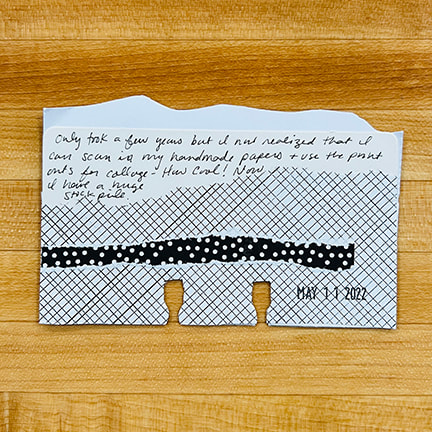 Only took a few years but I just realized that I
can scan in my handmade papers + use the print
outs for collage - How Cool! Now
I have a huge
stock pile.
MAY 11 2022